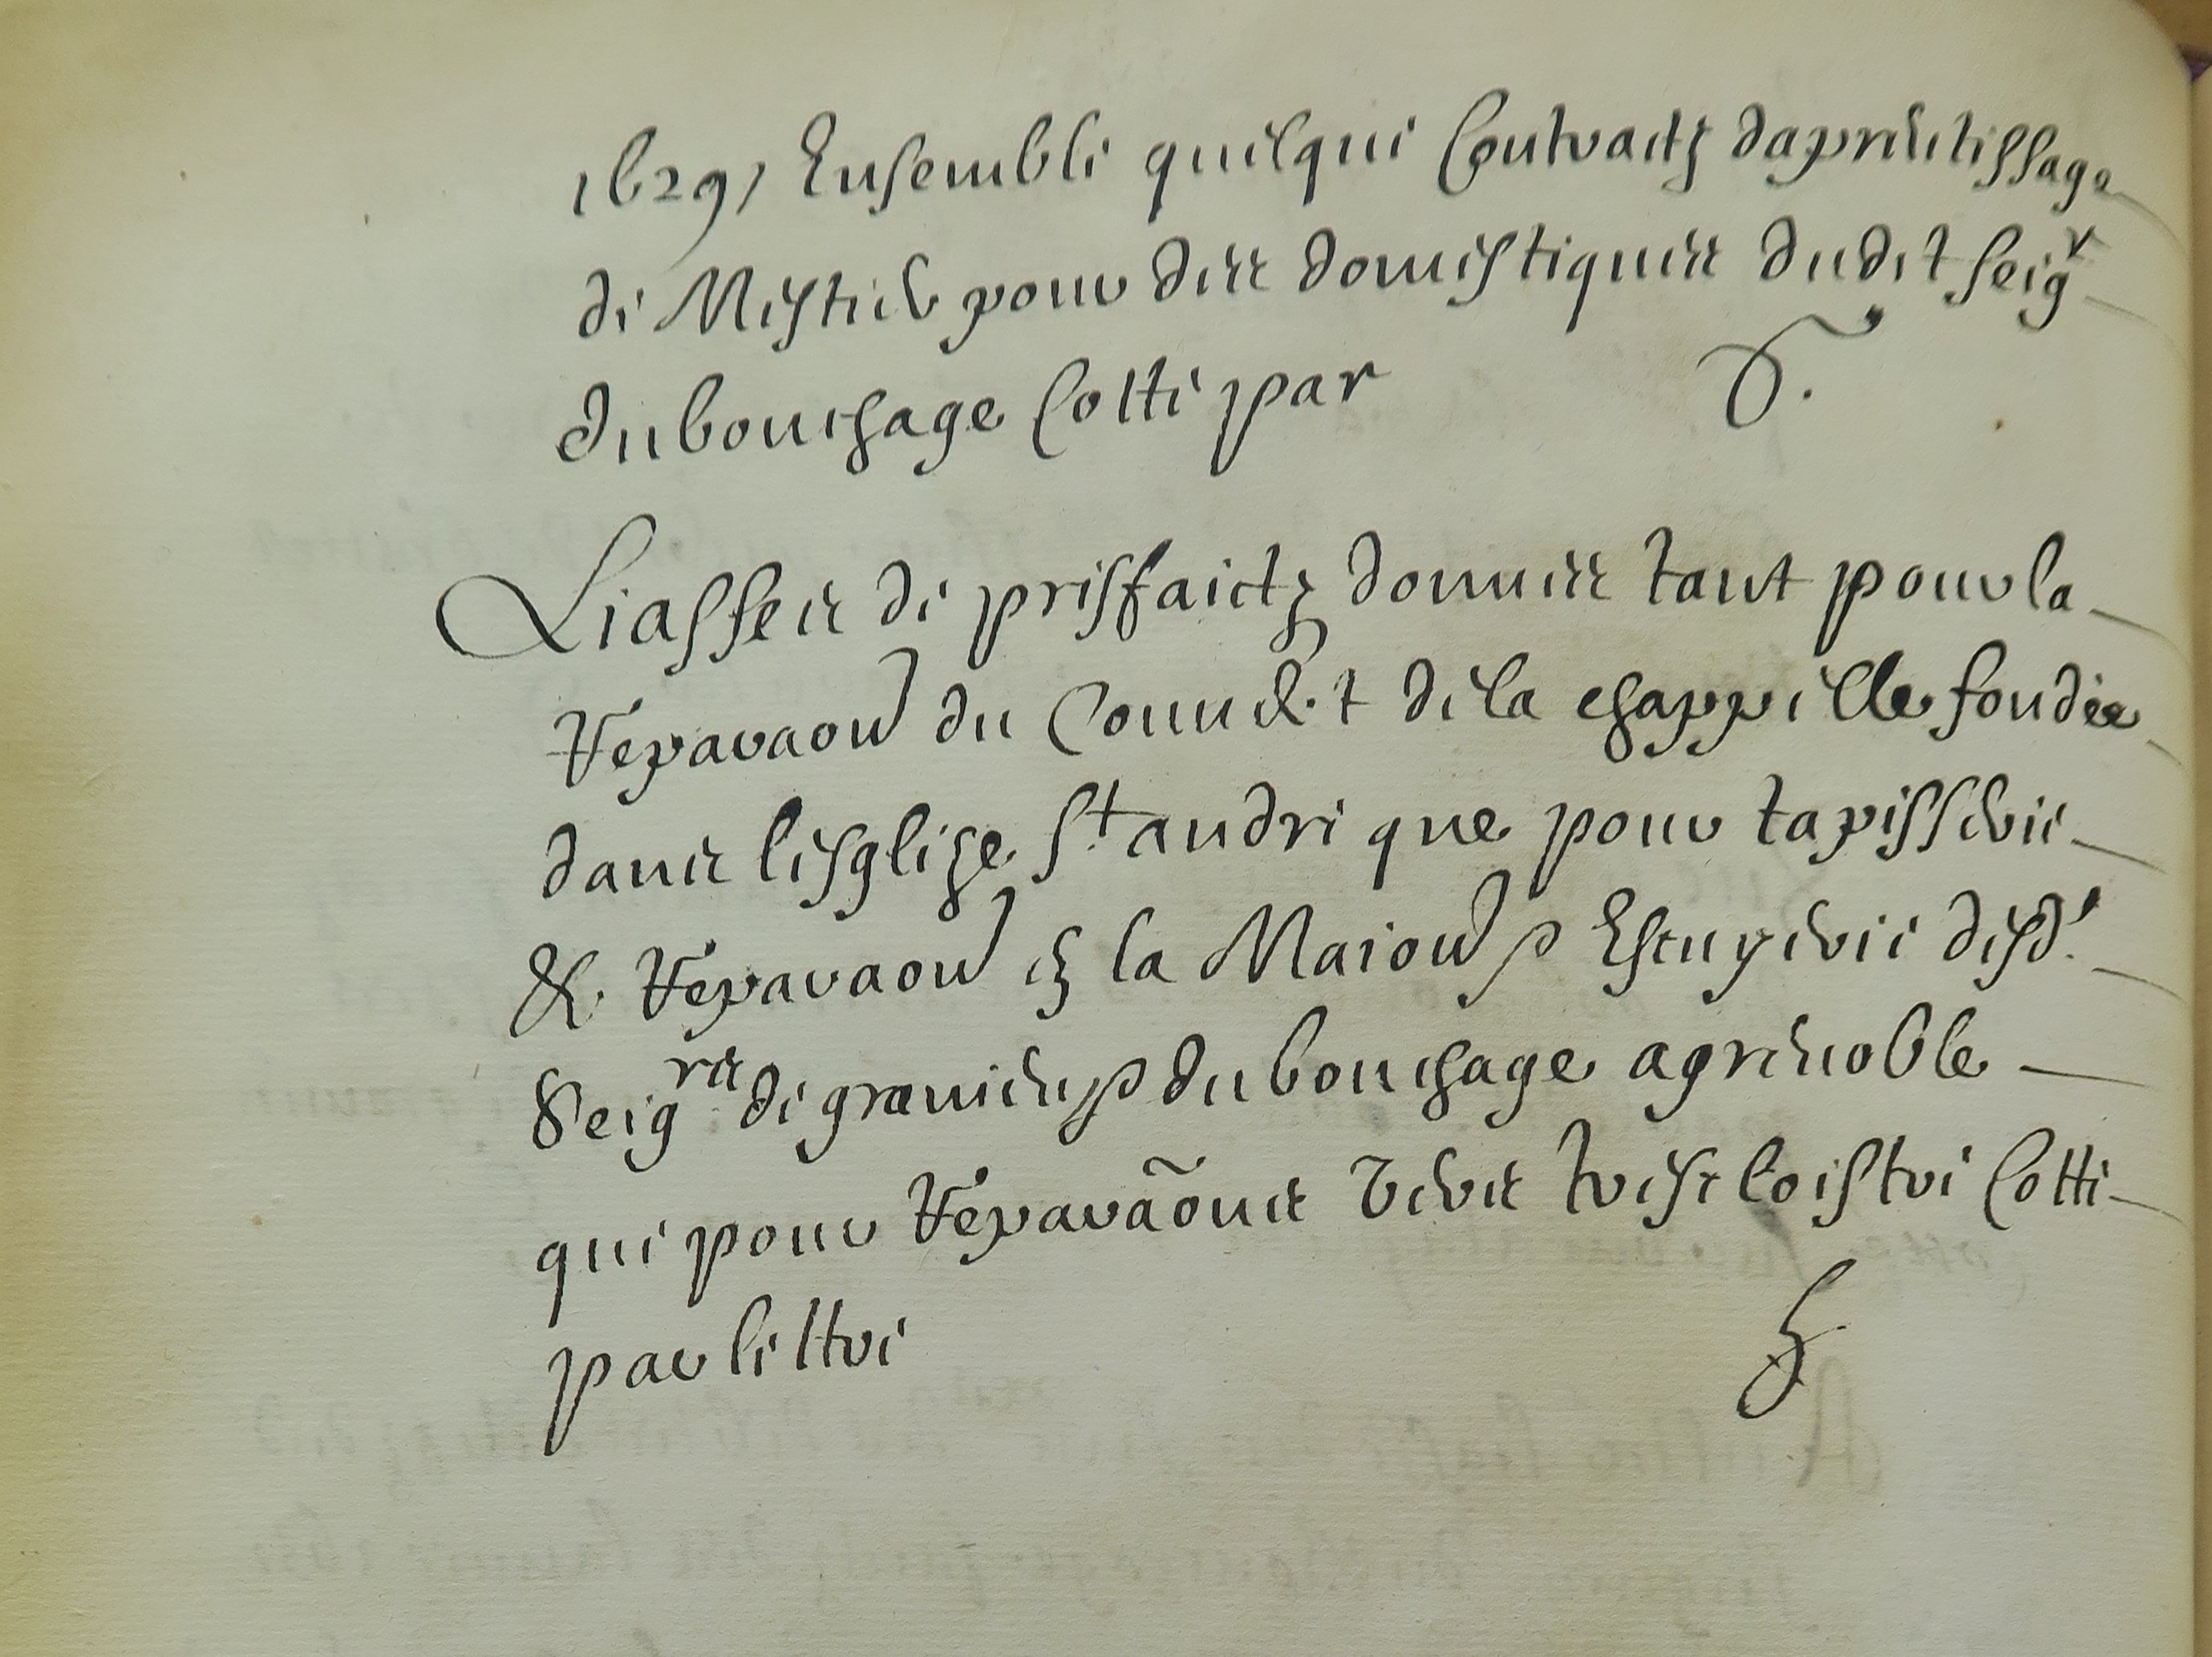 1629, Ensemble quelque Contractz daprentissage
de Mestier pour des domestiques dudit seigr
du bouchage Cotté par D.
Liasses de prisfaictz donnes tant pour la
Reparaon du Couuert de la chappelle fondée
dans lesglize St andre que pour tapisserie
& Reparaon de la Maison, Escuyerie desd.
Seigrs de granieu, du bouchage a grenoble
que pour Reparãons vers tresecloistre Cotté
par lettre E